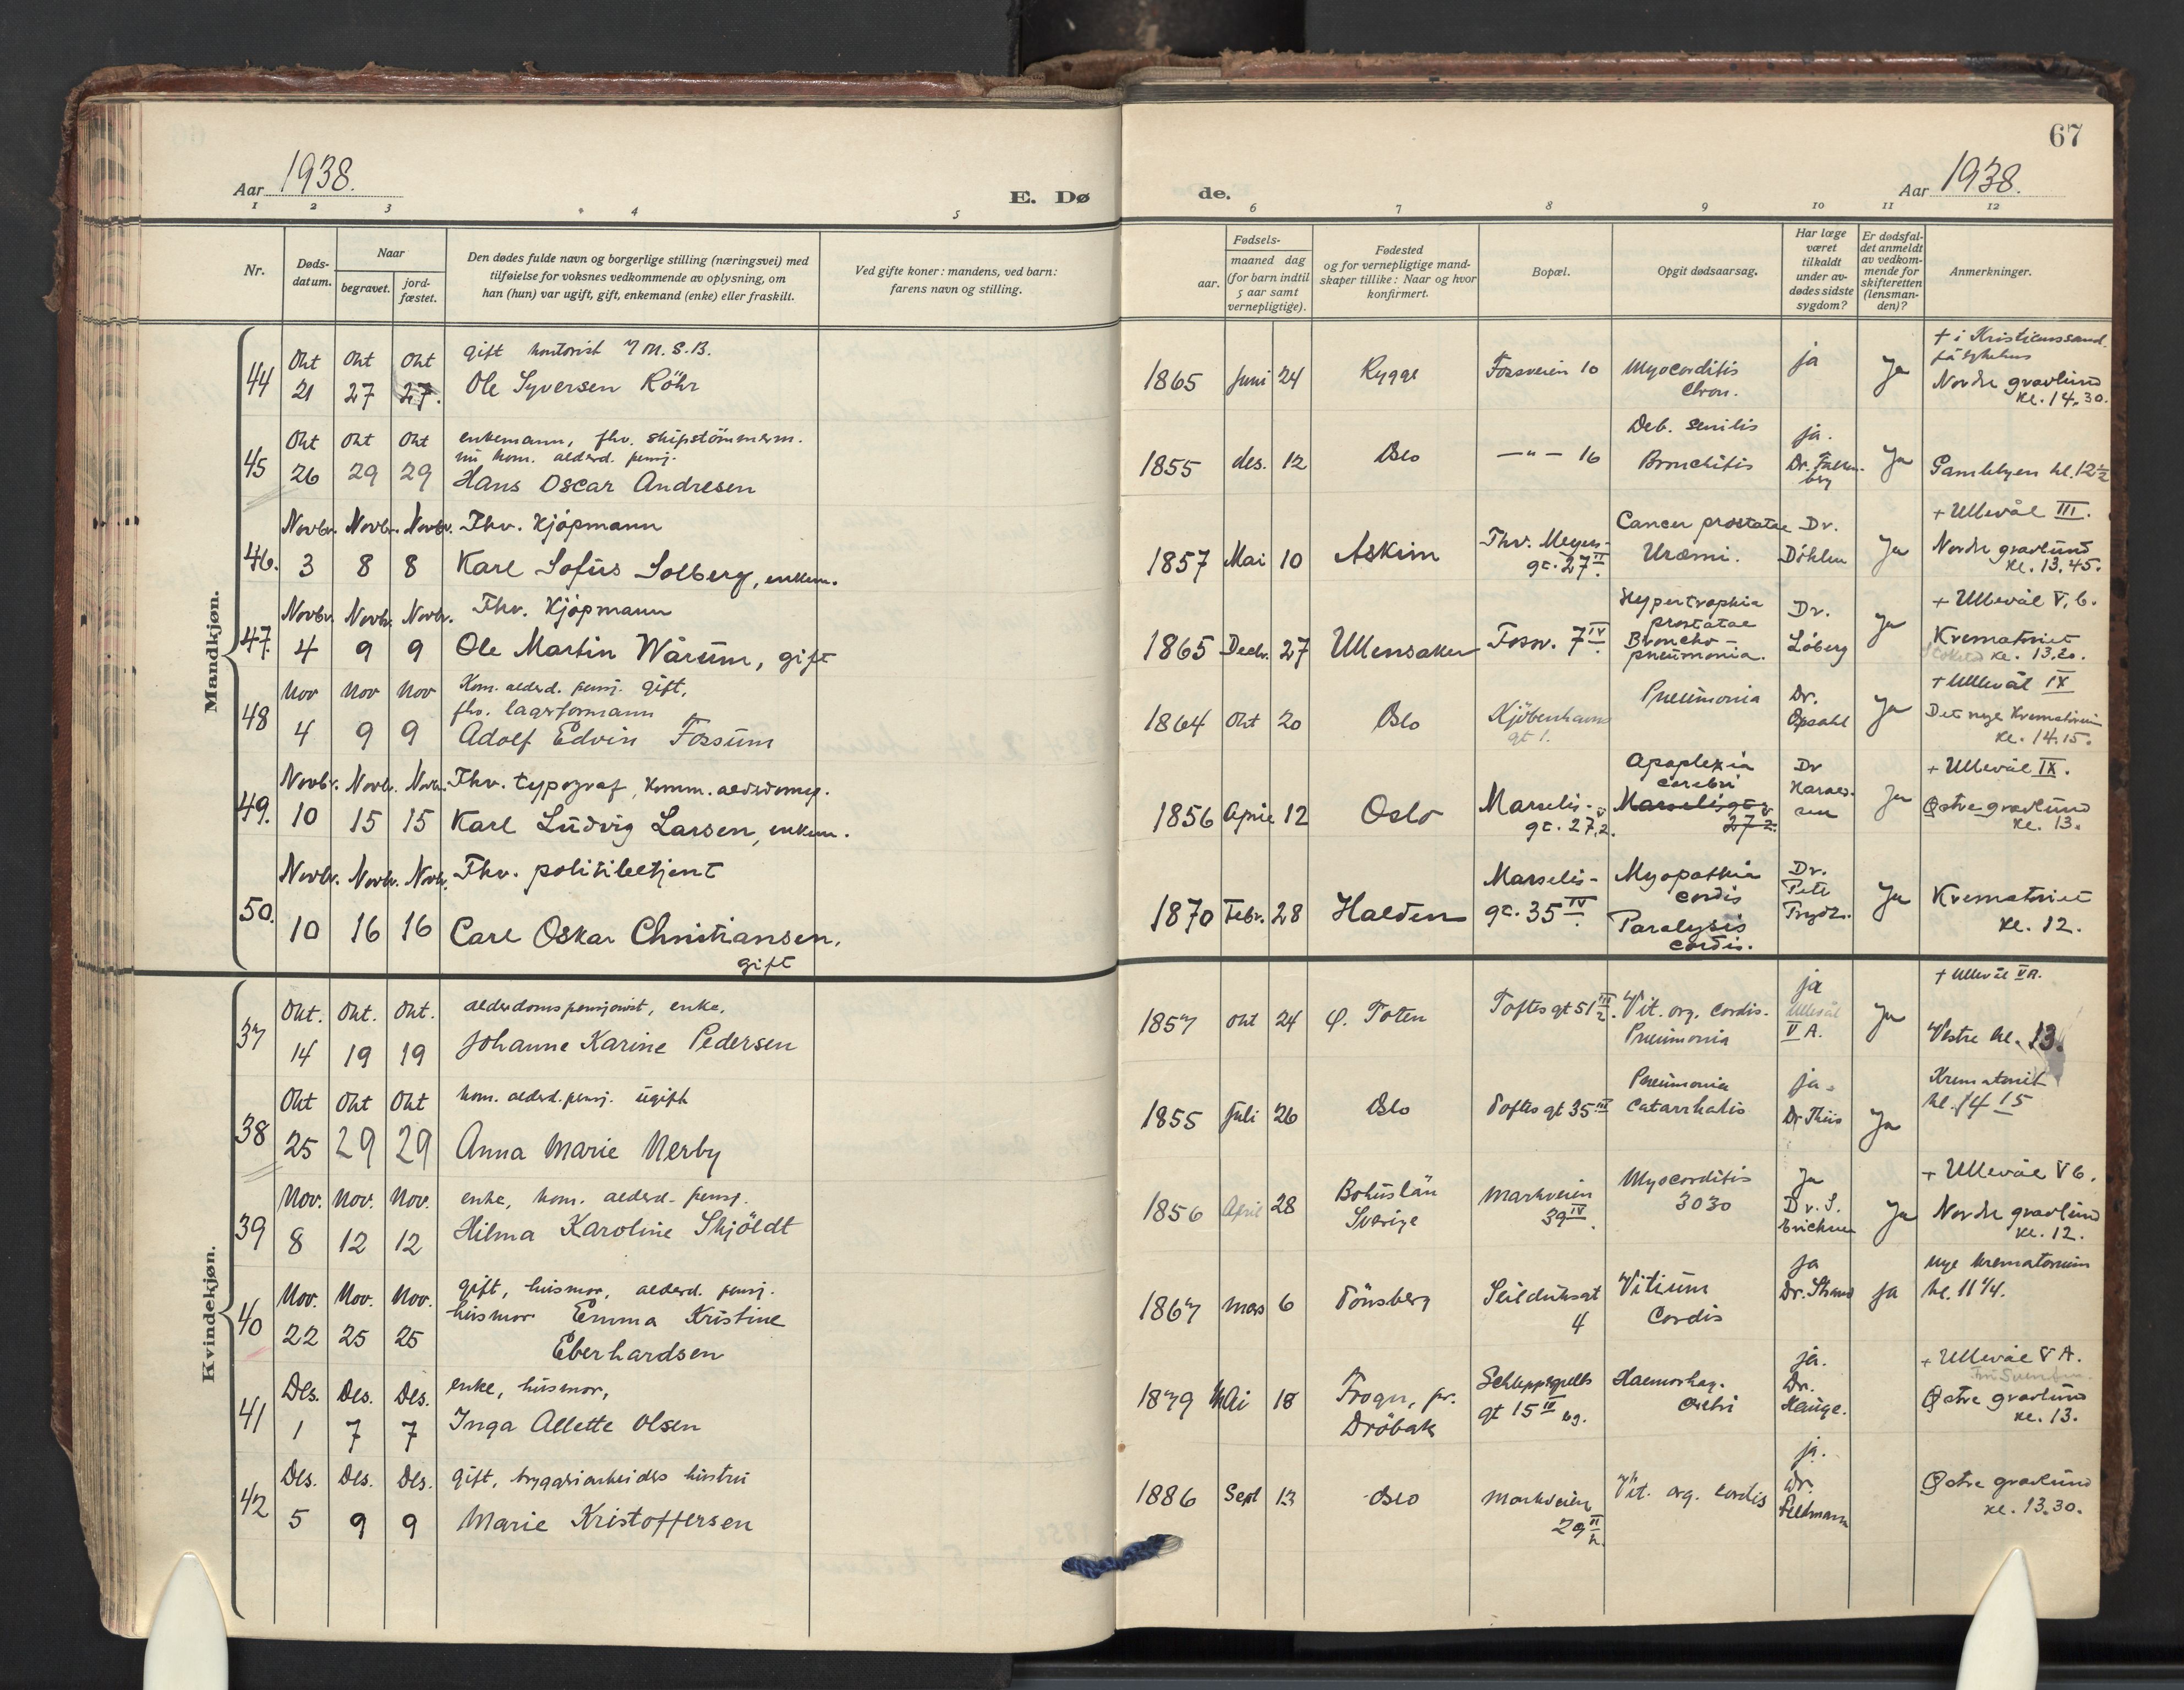 67
Aar 1938.
E. Dø
de.
Aar 1938.
1 2 3 4 5 6 7 8 9 10 11 12
Nr.
Døds-
datum.
Naar
begravet.
jord-
fæstet.
Den dødes fulde navn og borgerlige stilling (næringsvei) med
tilføielse for voksnes vedkommende av oplysning, om
han (hun) var ugift, gift, enkemand (enke) eller fraskilt.
Ved gifte koner: mandens, ved barn:
farens navn og stilling.
Fødsels-
aar.
maaned dag
(for barn indtil
5 aar samt
vernepligtige).
Fødested
og for vernepligtige mand-
skaper tillike: Naar og hvor
konfirmert.
Bopæl.
Opgit dødsaarsag.
Har læge
været
tilkaldt
under av-
dødes sidste
sygdom?
Er dødsfal-
det anmeldt
av vedkom-
mende for
skifteretten
(lensman-
den)?
Anmerkninger.
Mandkjøn.
44
Okt 21
Okt 27
Okt 27.
gift kontorist
Ole Syversen Röhr
1865 Juni 24
Rygge
Fossveien 10
Myocorditis
Chron.
ja
Ja
+ i Kristianssand
på sykehus
Nordre gravlund
kl. 14.30.
45
Okt 26
Okt 29
Okt 29
enkemann, fhv. skipstömmerm.
nu kom. alderd. pensj.
Hans Oscar Andresen
1855 des. 12
Oslo
—"— 16
Deb. senilis
Bronchitis
ja.
Dr. Falken-
berg
Ja
Gamlebyen kl. 12½
46.
Novbr. 3
Novbr. 8
Novbr. 8
Fhv. Kjøpmann
Karl Sofus Solberg, enkem.
1857 Mai 10
Askim
Thv. Meyers-
gt. 27 II.
Cancer prostatae
Uræmi.
Dr.
Döhlen
Ja
+ Ullevål III.
Nordre gravlund
kl. 13.45.
47.
Novbr. 4
Novbr. 9
Novbr. 9
Fhv. Kjøpmann
Ole Martin Wårum, gift
1865 Decbr. 27
Ullensaker
Fossv. 7 IV.
Hypertrophia
prostatae
Broncho-
pneumonia.
Dr.
Løberg
Ja
+ Ullevål V, b.
Krematoriet
kl. 13.20.
48
Nov 4
Nov 9
Nov 9
Kom. alderd. pensj. gift,
fhv. lagerformann
Adolf Edvin Fossum
1864 Okt 20
Oslo
Kjöbenhavns
gt 1.
Pneumonia
Dr.
Opsahl
Ja
+ Ullevål IX
Det nye Krematorium
kl. 14.15.
49.
Novbr. 10
Novbr. 15
Novbr. 15
Fhv. typograf, komm. alderdomsp.
Karl Ludvig Larsen, enkem.
1856 April 12
Oslo
Marselis-
gt. 27, 2.
Apoplexia
cerebri
Marselisgt
27 2.
Dr
Harald-
sen
Ja
+ Ullevål IX.
Østre gravlund
kl. 13.
50.
Novbr. 10
Novbr. 16
Novbr. 16
Fhv. politibetjent
Carl Oskar Christiansen,
gift
1870 Febr. 28
Halden
Marselis-
gt. 35 IV.
Myopathia
cordis
Paralysis
cordis.
Dr.
Ja
Krematoriet
kl. 12.
Kvindekjøn.
37
Okt. 14
Okt. 19
Okt. 19
alderdomspensjonist, enke.
Johanne Karine Pedersen
1857 okt 24
Ø. Toten
Toftes gt 51 III
Vit. org. cordis.
Pneumonia
ja
Ullevål
V A.
Ja
+ Ullevål VA.
Vestre kl. 13.
38
Okt 25
Okt 29
Okt 29
kom. alderd. pensj. ugift
Anna Marie Nerby
1855 Juli 26
Oslo
Toftes gt 35 III
Pneumonia
Catarrhalis
ja.
Dr Thiis
Ja
Krematoriet
kl. 14 15
39
Nov. 8
Nov. 12
Nov. 12
enke, kom. alderd. pensj.
Hilma Karoline Skjöldt
1856 April 28
Bohuslän
Sverige
Markveien
39 IV.
Myocorditis
3030
Ja
Dr. S.
Erichsen
Ja
+ Ullevål V b.
Nordre gravlund
kl. 12.
40
Nov. 22
Nov. 25
Nov. 25
gift, husmor, alderd. pensj.
husmor Emma Kristine
Eberhardsen
1867 mars 6
Tönsberg
Seilduksgt
4
Vitium
Cordis
ja
Dr. Strand
ja
nye krematorium
kl. 11 1/4.
41
Des. 1
Des. 7
Des. 7
enke, husmor,
Inga Allette Olsen
1879 Mai 18
Frogn, pr.
Dröbak
Schleppegrells
gt 15 IV
Haemorhag.
cerebri
ja.
Dr.
Hauge.
+ Ullevål V A.
Østre gravlund
kl. 13.
42
Des. 5
Des. 9
Des. 9
gift, bryggeriarbeiders hustru
Marie Kristoffersen
1886 Sept 13
Oslo
Markveien
29 II
h.
Vit. org. cordis
ja.
Dr.
Feldmann
Østre gravlund
kl. 13.30.